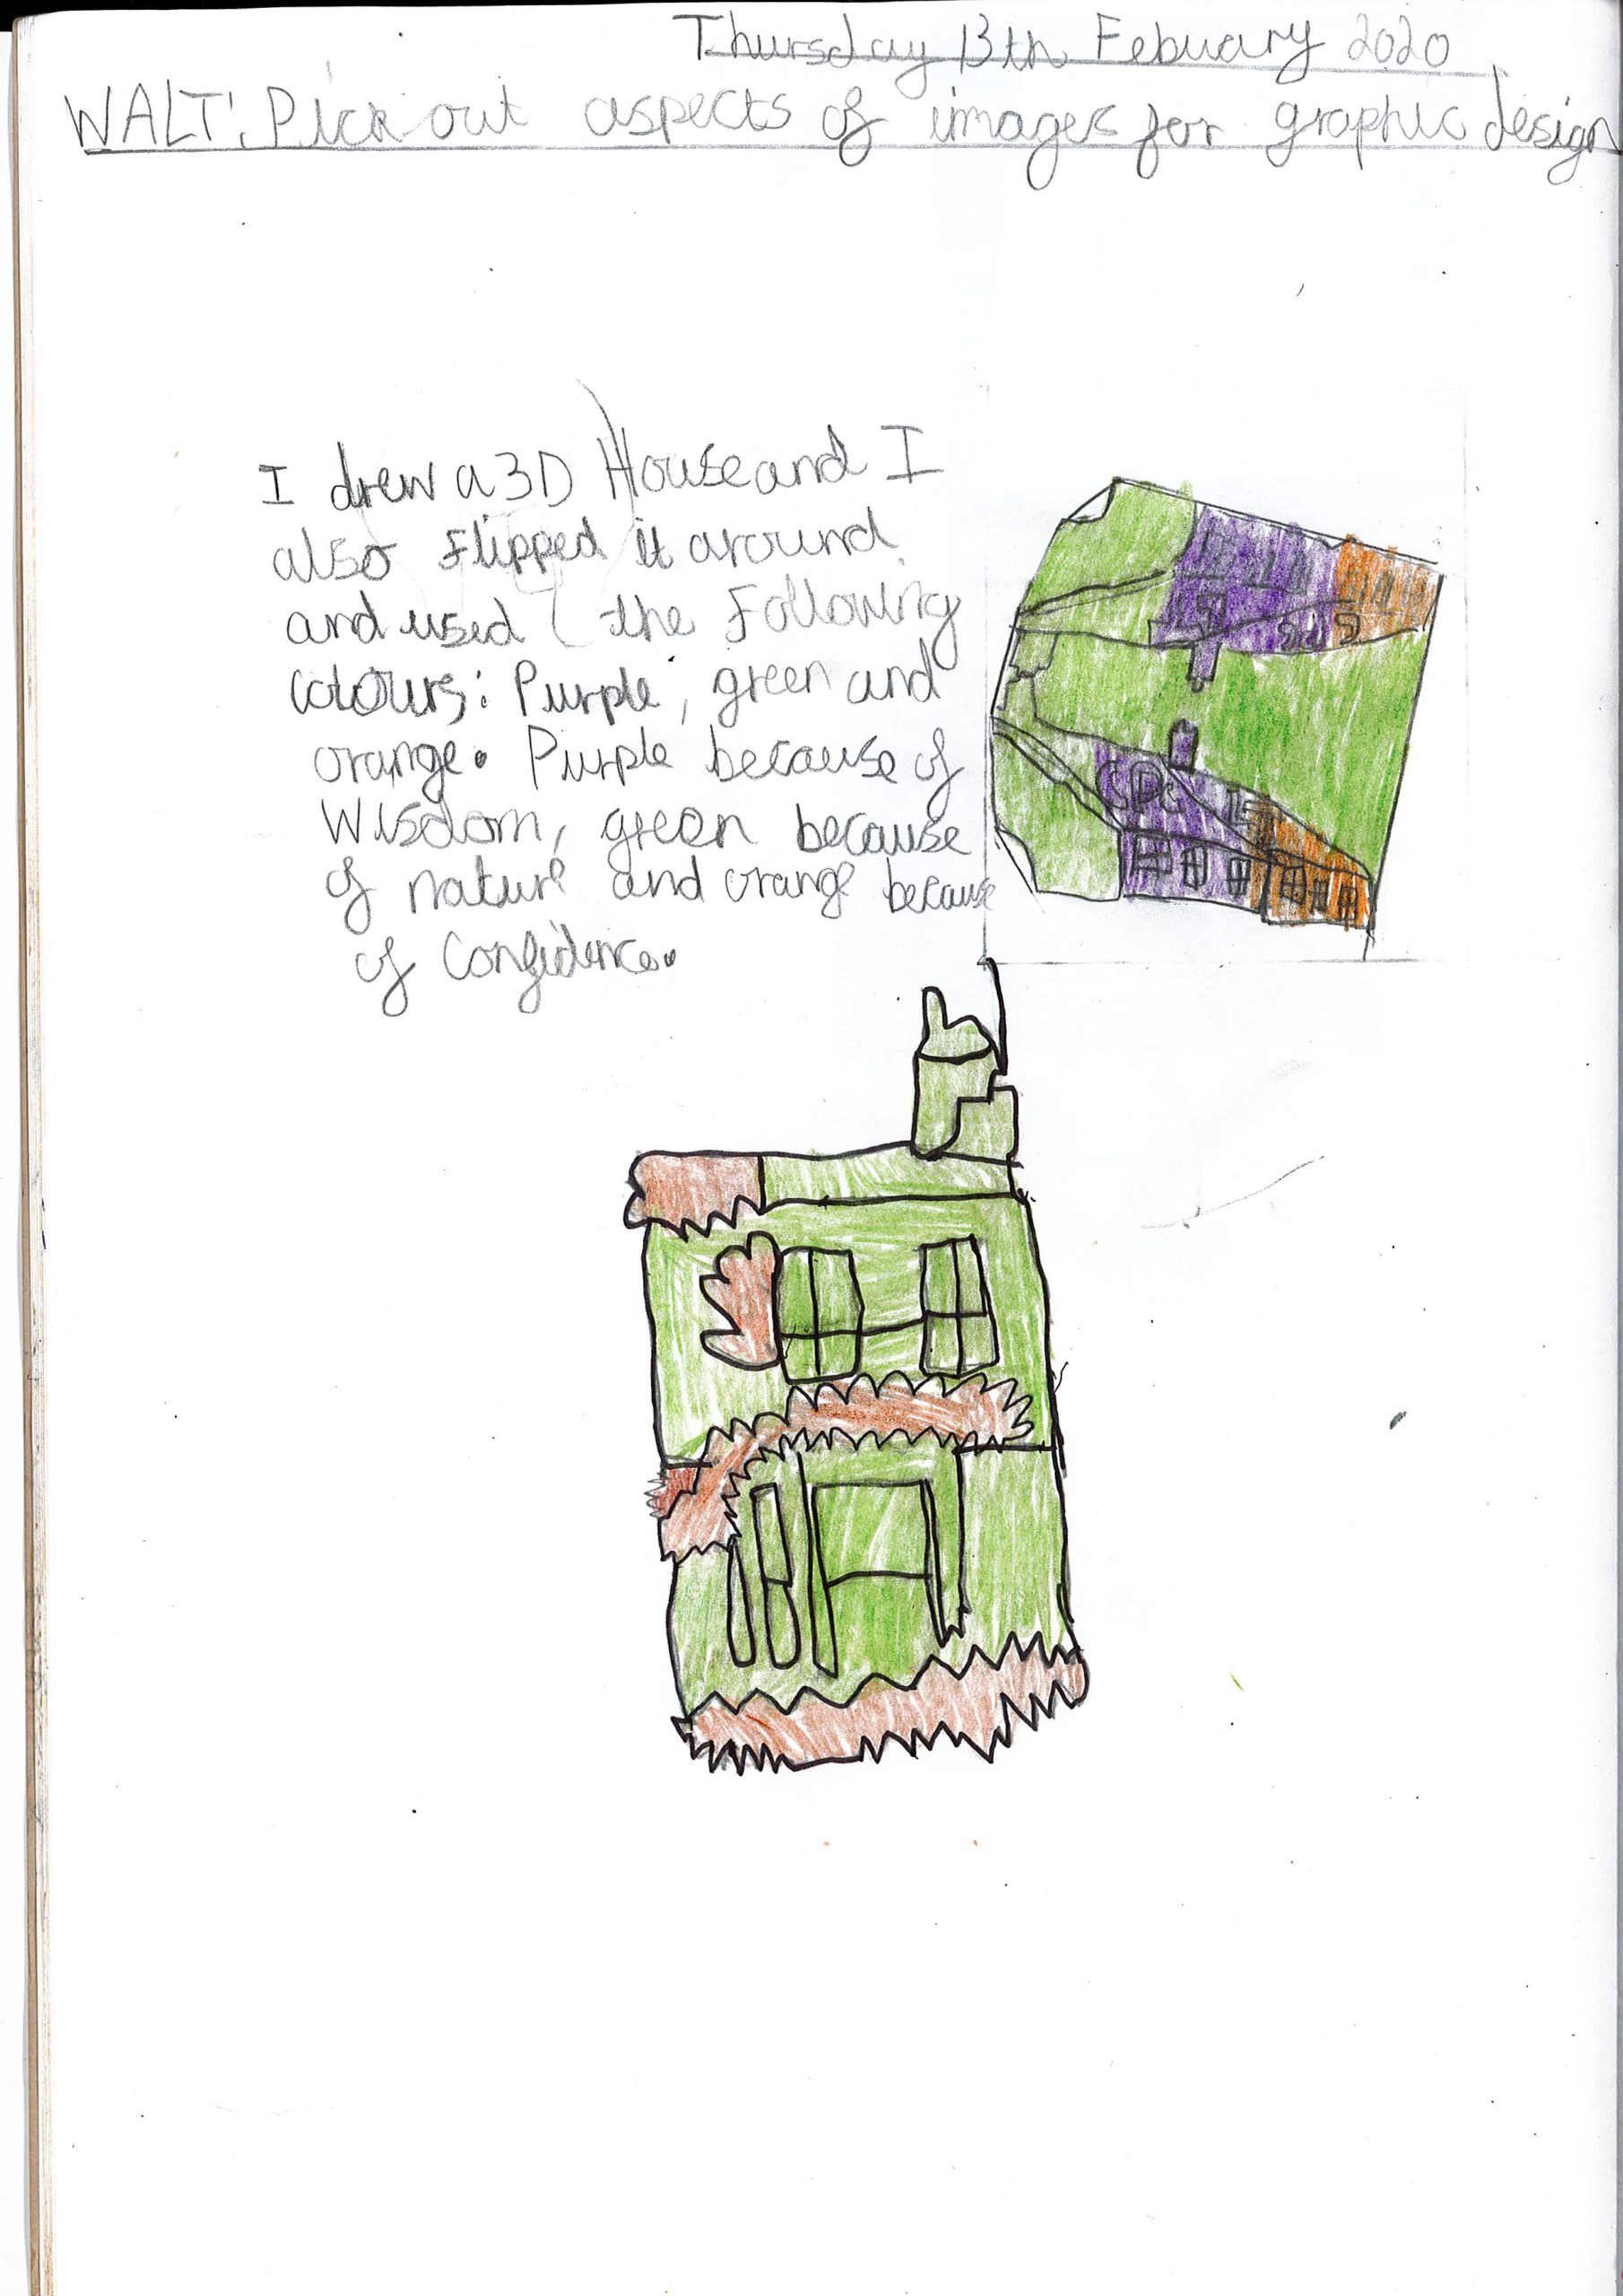 Thursday 13th Febuary 2020
WALT: Pick out aspects of images for graphic design
I drew a 3D House and I
also flipped it around
and used ( the Following
colours: Purple, green and
orange. Purple because of
Wisdom, green because
of nature and orange because
of confidence.